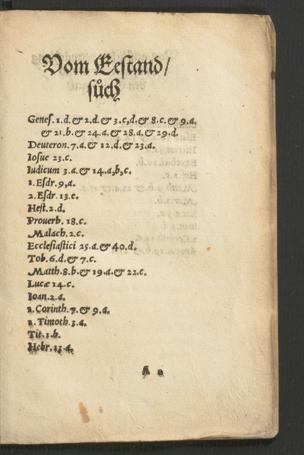 Vom Eestand/
sůch
Genes. 1.d. & 2.d. & 3.c,d. & 8.c. & 9.a.
& 21.b. & 24.a. & 28.a. & 29.d.
Deuteron. 7.a. & 12.d. & 23.a.
Iosue 23.c.
Iudicum 3.a. & 14.a,b,c.
1. Esdr. 9,a.
2. Esdr. 13.c.
Hest. 2.d.
Prouerb. 18.c.
Malach. 2.c.
Ecclesiastici 25.a. & 40.d.
Tob. 6.d. & 7.c.
Matth. 8.b. & 19.a. & 22.c.
Lucæ 14.c.
Ioan. 2.a.
1. Corinth. 7. & 9.a.
1. Timoth. 3.a.
Tit. 1.b.
Hebr. 13.a.